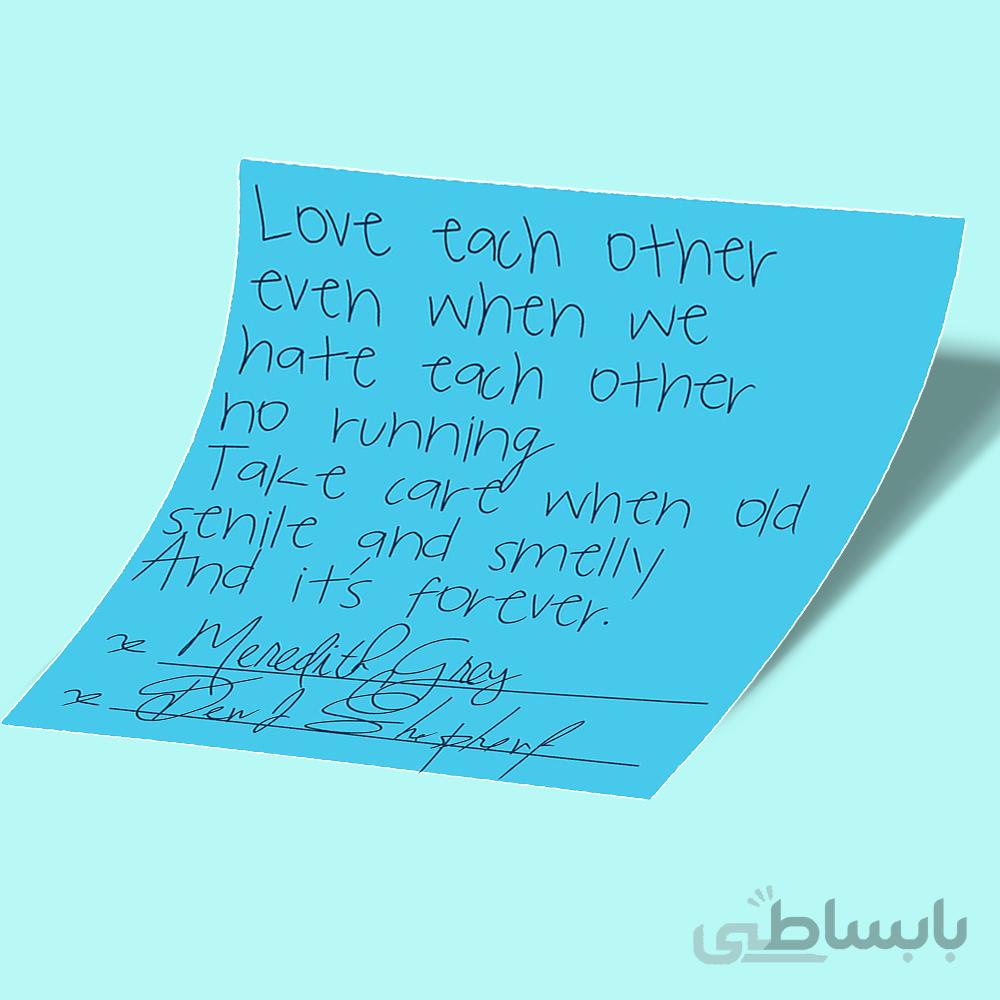 Love each other
even when we
hate each other
no running
Take care when old
senile and smelly
And it's forever.
x Meredith Grey
x Derek Shepherd
بابساطی